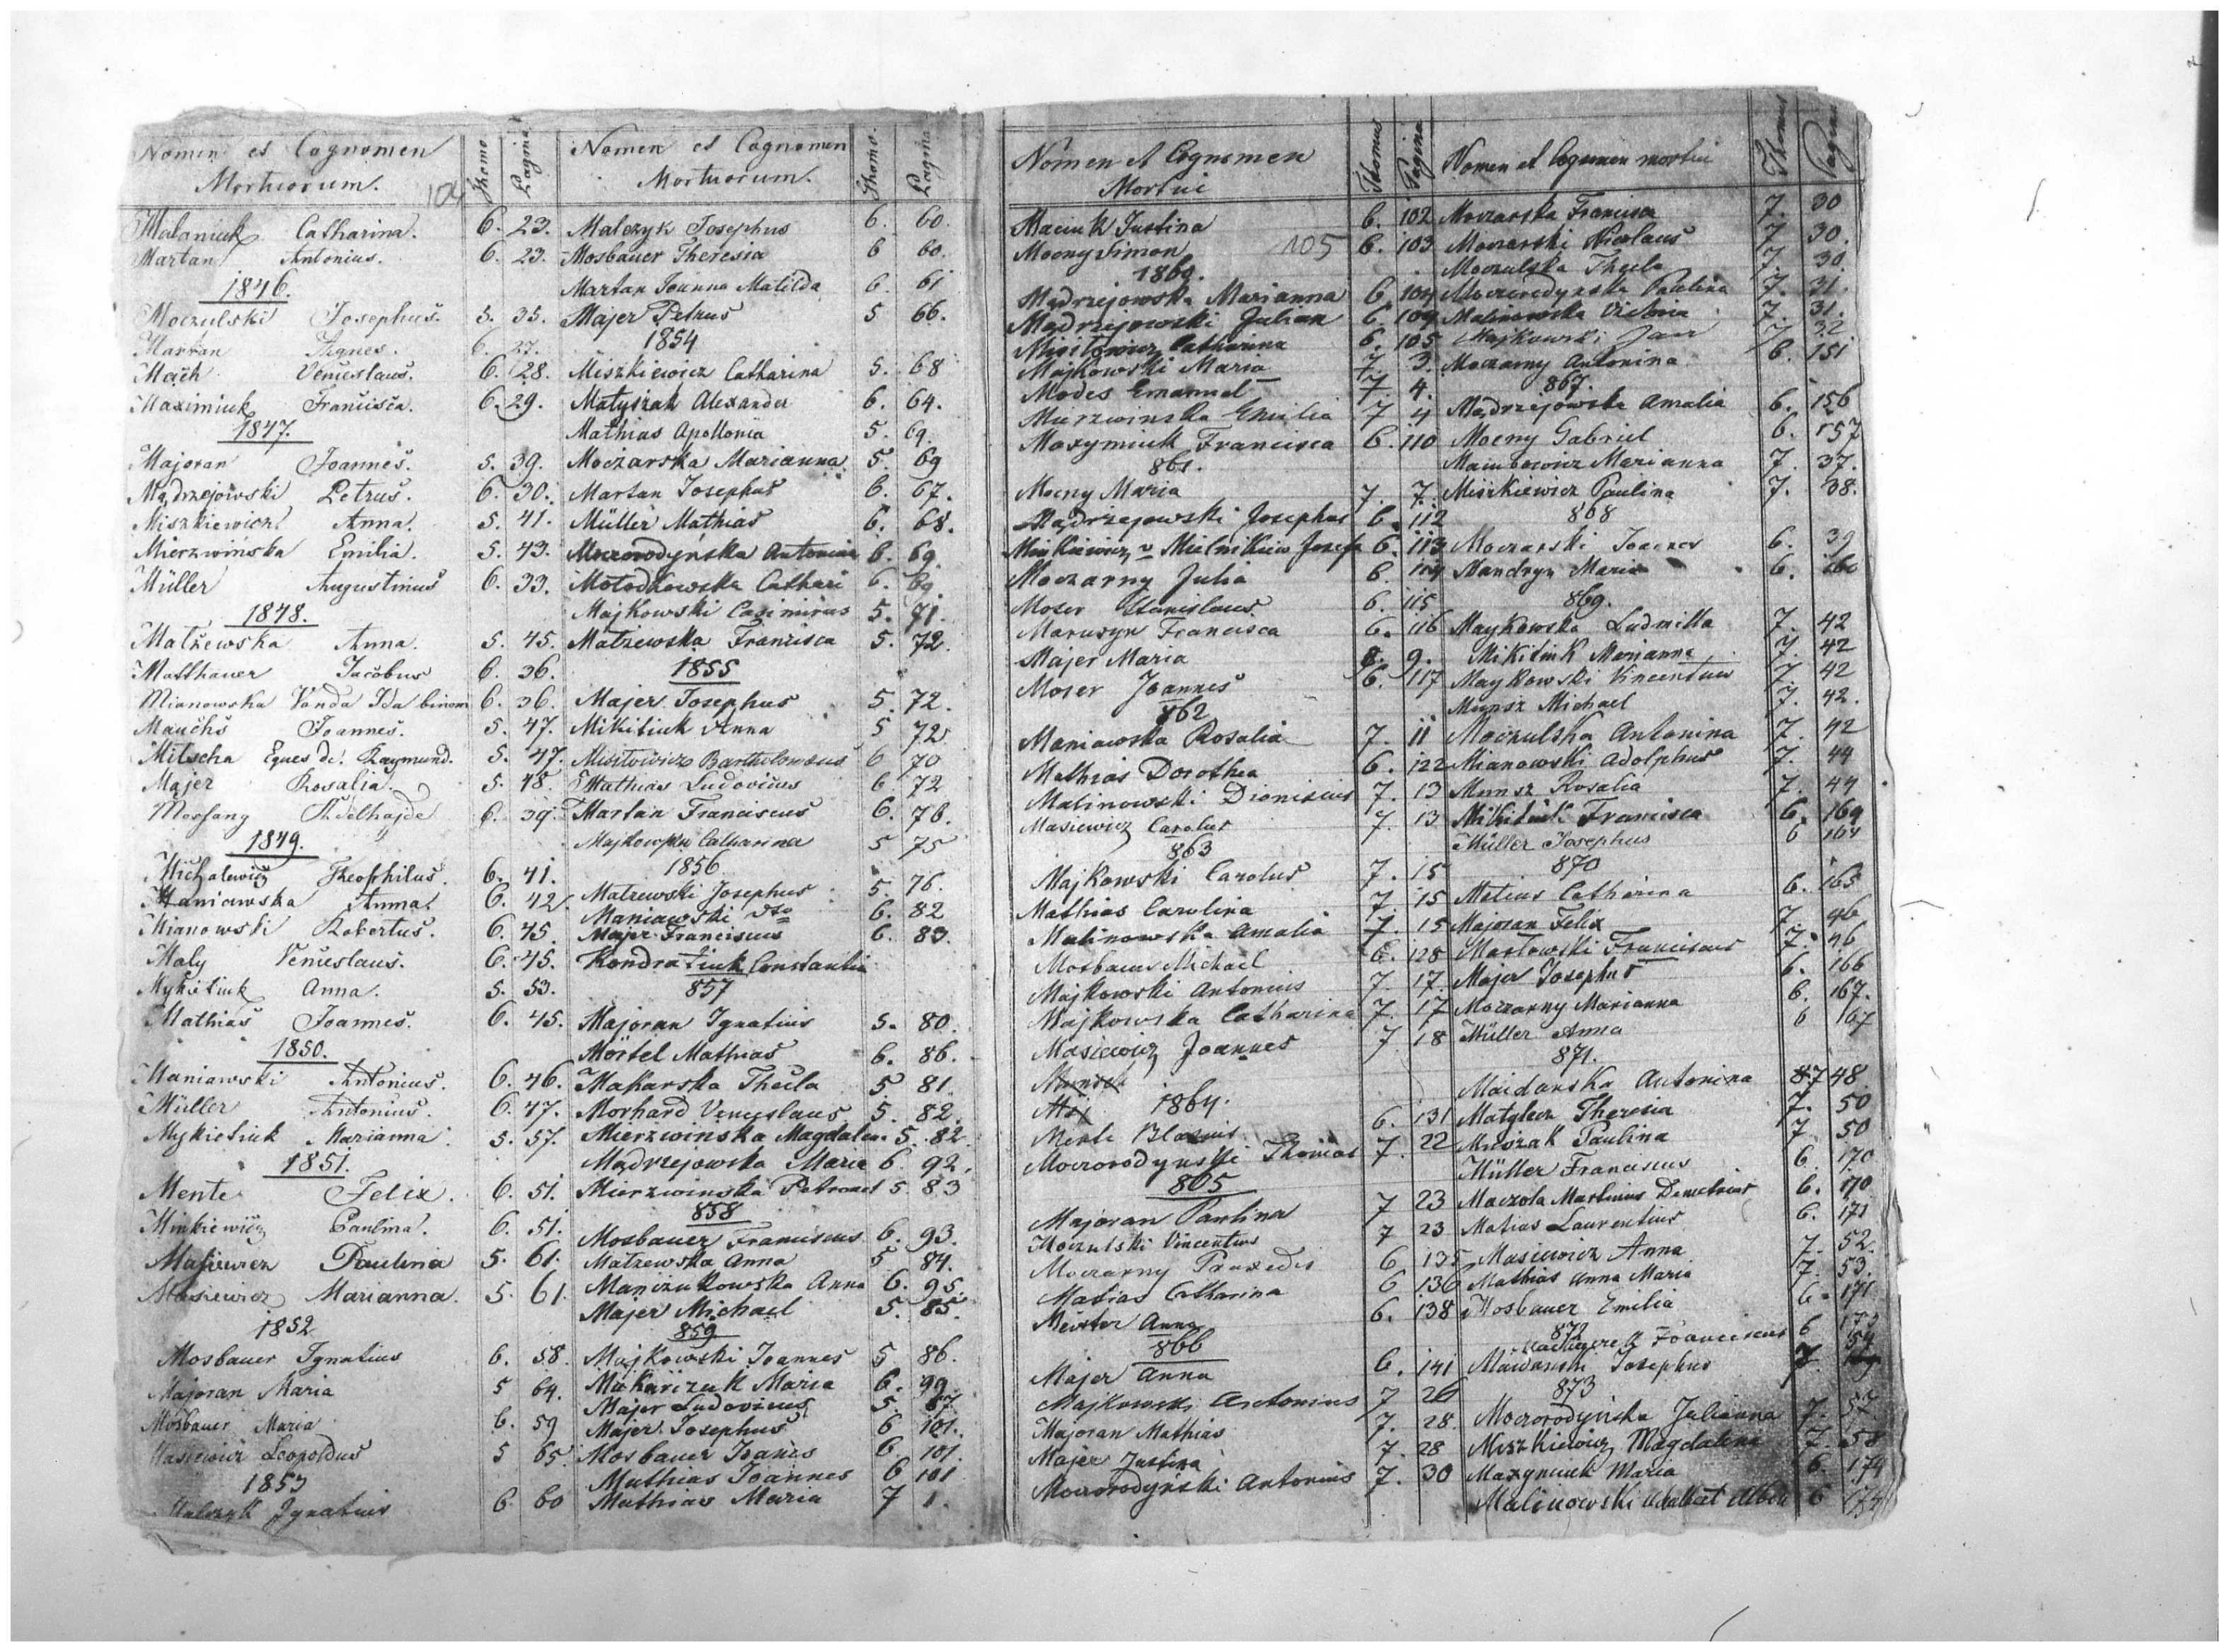 Nomen et Cognomen
Mortuorum.
104
Thomo
Pagina
Malaniuk Catharina. 6. 23.
Martan Antonius. 6. 23.
1846.
Moczulski Josephus. 5. 35.
Martan Agnes. 6. 27.
Mach Venceslaus. 6. 28.
Maximiuk Francisca. 6. 29.
1847.
Majoran Joannes. 5. 39.
Mądrzejowski Petrus. 6. 30.
Miszkiewicz Anna. 5. 41.
Mierzwińska Emilia. 5. 43.
Müller Augustinus 6. 33.
1848.
Malzewska Anna. 5. 45.
Matthauer Jacobus 6. 36.
Mianowska Vanda Ida binom 6. 36.
Mauchs Joannes. 5. 47.
Mitscha Eques de. Raymund. 5. 47.
Majer Rosalia. 5. 48.
Messang Adelhajde 6. 39.
1849.
Michalewicz Theophilus. 6. 41.
Maniawska Anna. 6. 42.
Mianowski Robertus. 6. 45.
Maly Venceslaus. 6. 45.
Mykietiuk Anna. 5. 53.
Mathias Joannes. 6. 45.
1850.
Maniawski Antonius. 6. 46.
Müller Antonius. 6. 47.
Mykietiuk Marianna. 5. 57.
1851.
Mente Felix. 6. 51.
Minkiewicz Paulina. 6. 51.
Masiewicz Paulina 5. 61.
Masiewicz Marianna. 5. 61.
1852
Mosbauer Ignatius 6. 58.
Majoran Maria 5 64.
Mosbauer Maria 6. 59
Masiewicz Leopoldus 5 65.
1853
Malczyk Ignatius 6. 60
Nomen et Cognomen
Mortuorum.
Thomo.
Pagina
Malczyk Josephus 6. 60.
Mosbauer Theresia 6 60.
Martan Joanna Matilda 6. 61
Majer Petrus 5 66.
1854
Miszkiewicz Catharina 5. 68
Matyszak Alexander 6. 64.
Mathias Apollonia 5. 69.
Moczarska Marianna 5. 69
Martan Josephus 6. 67.
Müller Mathias 6. 68.
Moczorodyńska Antonina 6. 69.
Mołodkowska Cathari 6. 69.
Majkowski Casimirus 5. 71.
Malzewska Francisca 5. 72.
1855
Majer Josephus 5. 72.
Mikitiuk Anna 5 72.
Misitowicz Bartholomaeus 6 70
Mathias Ludovicus 6. 72
Martan Franciscus 6. 76.
Majkowska Catharina 5 75
1856
Malzewski Josephus 5. 76.
Maniawski Otto 6. 82
Majer Franciscus 6. 83.
Kondratiuk Constantia
857
Majoran Ignatius 5. 80.
Mörtel Mathias 6. 86.
Makarska Thecla 5 81.
Morhard Venceslaus 5. 82.
Mierzwinska Magdalen. 5. 82.
Mądrzejowska Maria 6. 92.
Mierzwinska Petronel 5 83
858
Mosbauer Franciscus 6. 93.
Malzewska Anna 5 84.
Manizukowska Anna 6. 95.
Majer Michael 5. 85.
859
Majkowski Joannes 5 86.
Makarczuk Maria 6. 99
Majer Ludovicus 5. 87.
Majer Josephus 6 101.
Mosbauer Joanes 6. 101.
Mathias Joannes 6 101
Mathias Maria 7 1.
Nomen et Cognomen
Mortui
105
Thomus
Pagina
Maciuk Justina 6. 102
Mocny Simon 6. 103
1860.
Mądrzejowska Marianna 6. 104
Mądrzejowski Julian 6. 104
Misitowicz Catharina 6. 105
Majkowski Maria 7. 3.
Modes Emanuel 7 4.
Mierzwinska Emilia 7 4
Maxymiuk Francisca 6. 110
861.
Mocny Maria 7. 7.
Mądrzejowski Josephus 6. 112
Minkiewicz v Mielnikiew Josefa 6. 113
Moczarny Julia 6. 114
Moser Stanislaus 6. 115
Marusyn Francisca 6. 116
Majer Maria 8. 9.
Moser Joannes 6. 117
862
Maniawska Rosalia 7. 11
Mathias Dorothea 6. 122
Malinowski Dionisius 7. 13
Masiewicz Carolus 7. 13
863
Majkowski Carolus 7. 15
Mathias Carolina 7. 15
Malinowska Amalia 7. 15
Mosbauer Michael 6. 128
Majkowski Antonius 7. 17.
Majkowska Catharina 7. 17
Masiewicz Joannes 7 18
1864.
Merle Blasius 6. 131
Moczorodynski Thomas 7. 22
865
Majoran Paulina 7 23
Moczulski Vincentius 7 23
Moczarny Praxedis 6 135
Matias Catharina 6 136
Meister Anna 6. 138
866
Majer Anna 6. 141
Majkowski Antonius 7 26
Majoran Mathias 7. 28
Majer Justina 7. 28
Moczorodyński Antonius 7. 30
Nomen et Cognomen mortui
Thomus
Pagina
Moczarska Francisca 7. 30
Moczarski Nicolaus 7 30.
Moczulska Thecla 7. 30.
Moczorodynska Paulina 7. 31.
Malinowska Victoria 7. 31.
Majkowski Jan 7 32
Moczarny Antonina 6. 151
867.
Mądrzejowska Amalia 6. 156
Mocny Gabriel 6. 157
Marianna 7. 37.
Miszkiewicz Paulina 7. 38.
868
Moczarski Joannes 6. 39
Mandryn Maria 6. 160
869.
Maykowska Ludmilla 7. 42
Mikitiuk Marianna 7. 42
Maykowski Vincentius 7 42
Munsz Michael 7. 42.
Moczulska Antonina 7. 42
Mianowski Adolphus 7. 44
Munsz Rosalia 7. 44
Mikitiuk Francisca 6. 164
Müller Josephus 6 164
870
Matias Catharina 6. 165
Majoran Felix 7 46
Masłowski Franciscus 7. 46
Majer Josephus 6. 166
Moczarny Marianna 6. 167.
Müller Anna 6 167
871.
Maidanska Antonina 7 48.
Theresia 7. 50
Mroszak Paulina 7 50
Müller Franciscus 6 170
Maczola Martinus Demetrius 6. 170
Matias Laurentius 6. 171
Masiewicz Anna 7. 52.
Mathias Anna Maria 7. 53.
Mosbauer Emilia 6. 171
872
Franciscus 6 173
Maidanski Josephus 7. 54
873
Moczorodyńska Julianna 7. 57
Miszkiewicz Magdalena 7. 58
Maxymiuk Maria 6. 174
Malinowski Adalbert Albin 6 174